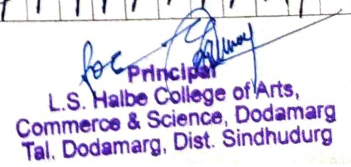 for
Principal
L.S. Halbe College of Arts,
Commerce & Science, Dodamarg
Tal. Dodamarg, Dist. Sindhudurg